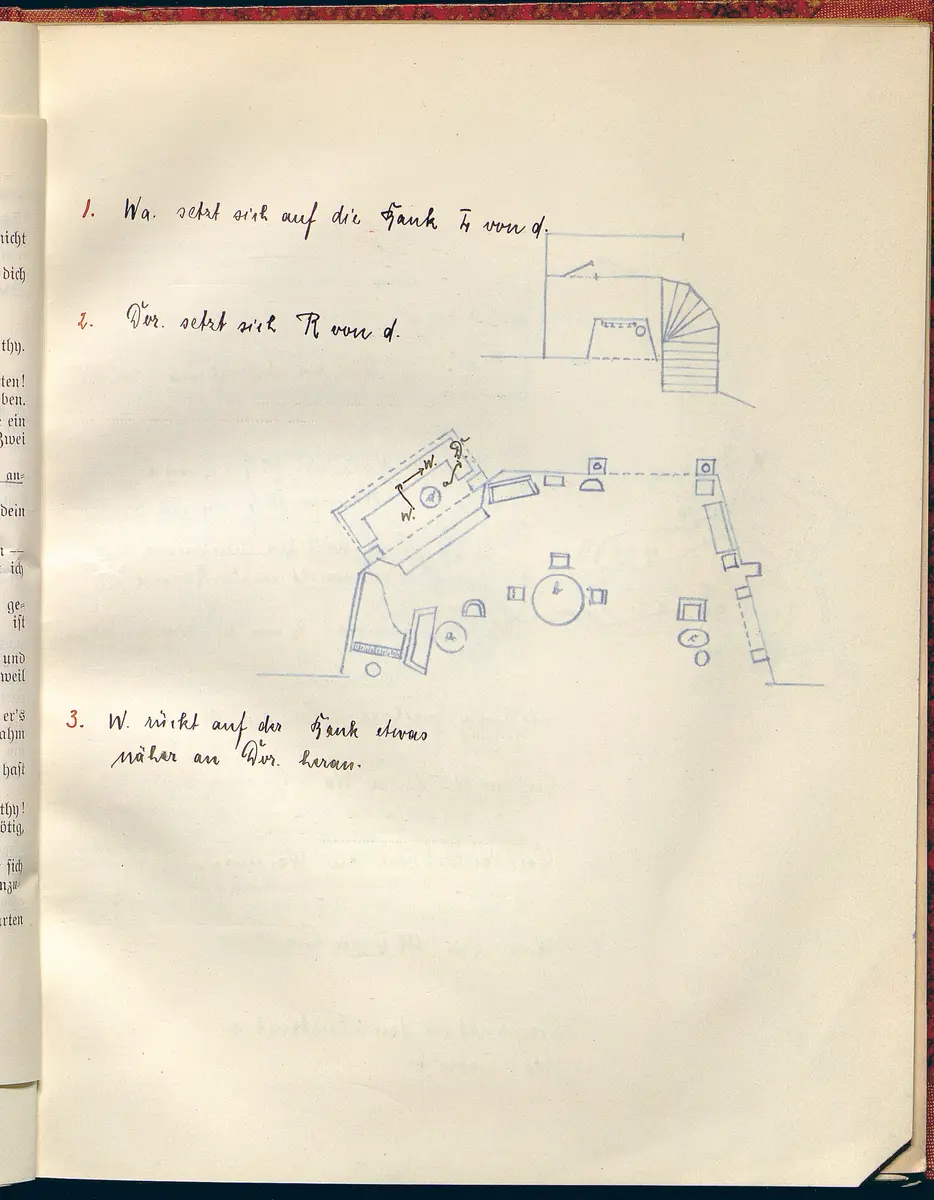 nicht
dich
thy.
ten!
ben.
ein
Zwei
an-
dein
—
ich
ge-
ist
und
weil
er's
ahm
hast
thy!
ötig,
sich
nzu-
arten
1. Wa. setzt sich auf die Bank L von d.
2. Dor. setzt sich R von d.
W. Dr.
W. d
a
b
a c
3. W. rückt auf der Bank etwas
näher an Dor. heran.